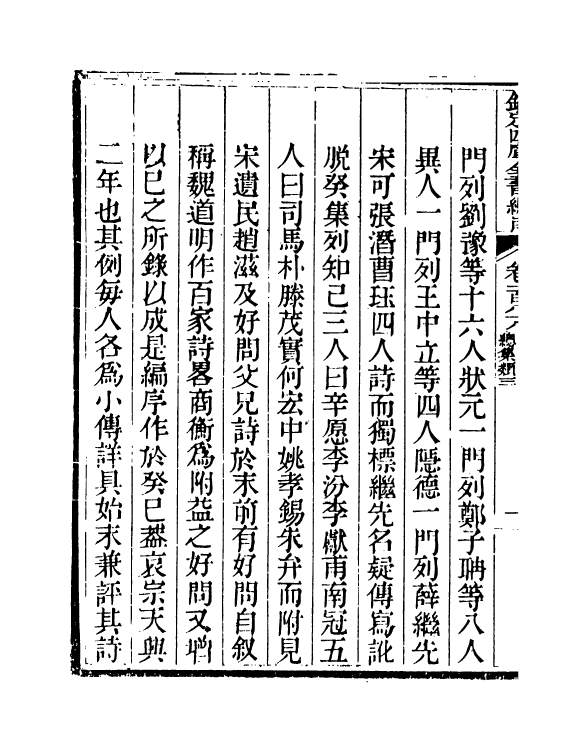 欽定四庫全書總目 卷一百八十八 總集類三 一
門列劉豫等十六人狀元一門列鄭子聃等八人
異人一門列王中立等四人隱德一門列薛繼先
宋可張潛曹珏四人詩而獨標繼先名疑傳寫訛
脫癸集列知己三人曰辛愿李汾李獻甫南冠五
人曰司馬朴滕茂實何宏中姚孝錫朱弁而附見
宋遺民趙滋及好問父兄詩於末前有好問自叙
稱魏道明作百家詩畧商衡為附益之好問又增
以己之所錄以成是編序作於癸巳葢哀宗天興
二年也其例每人各為小傳詳具始末兼評其詩